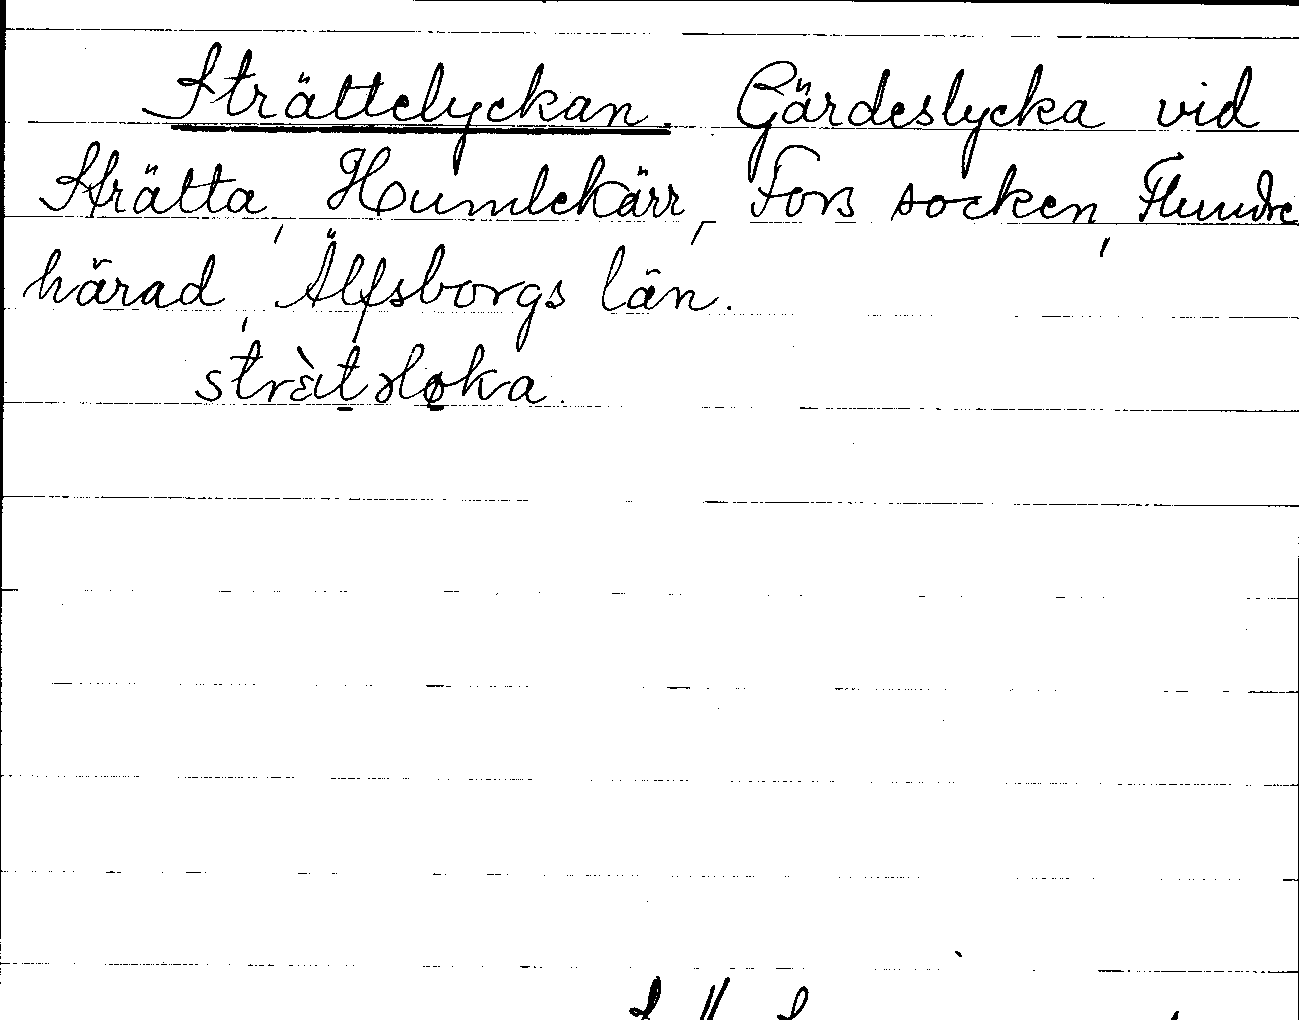 Strättelyckan. Gärdeslycka vid
Strätta, Humlekärr, Fors socken, Flundre
härad, Älfsborgs län.
strὲt̲əlø̲ka.